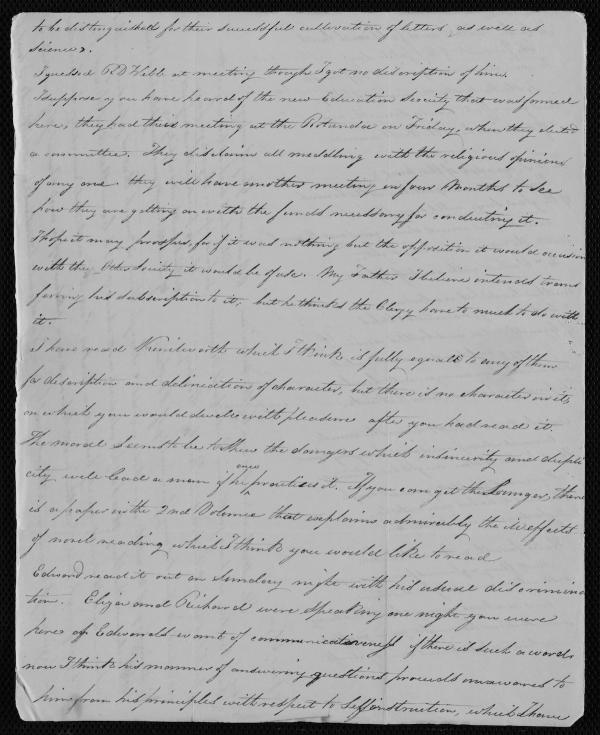 to be distinguished for their successful cultivation of letters, as well as
science.
I guessed RD Webb at meeting though I got no discription of him.
I suppose you have heard of the new Education Society that was formed
here, they had their meeting at the Rotunda on Friday, when they elected
a committee. They disclaim all meddling with the religious opinions
of any one they will have another meeting in four Months to see
how they are getting on with the funds necessary for conducting it.
I hope it may prosper, for if it was nothing but the opposition it would occasion
with the other Society it would be of use. My Father I believe intends trans
ferring his subscription to it, but he thinks the Clergy have to much to do with
it.
I have read Kenilworth which I think is fully equal to any of them
for discription and deliniation of character, but there is no character in it,
on which you would dwell with pleasure after you had read it.
The moral seems to be to shew the dangers which insincerity and dupli
city will lead a man if he once practises it. If you can get the Lounger, there
is a paper in the 2nd Volume that explains admirably the ill effects
of novel reading which I think you would like to read
Edward read it out on sunday night with his usual discrimina
tion. Eliza and Richard were speaking one night you were
here of Edwards want of communicativeness if there is such a word
now I think his manner of answering questions proceeds unawares to
him from his principles with respect to Self instruction, which I have